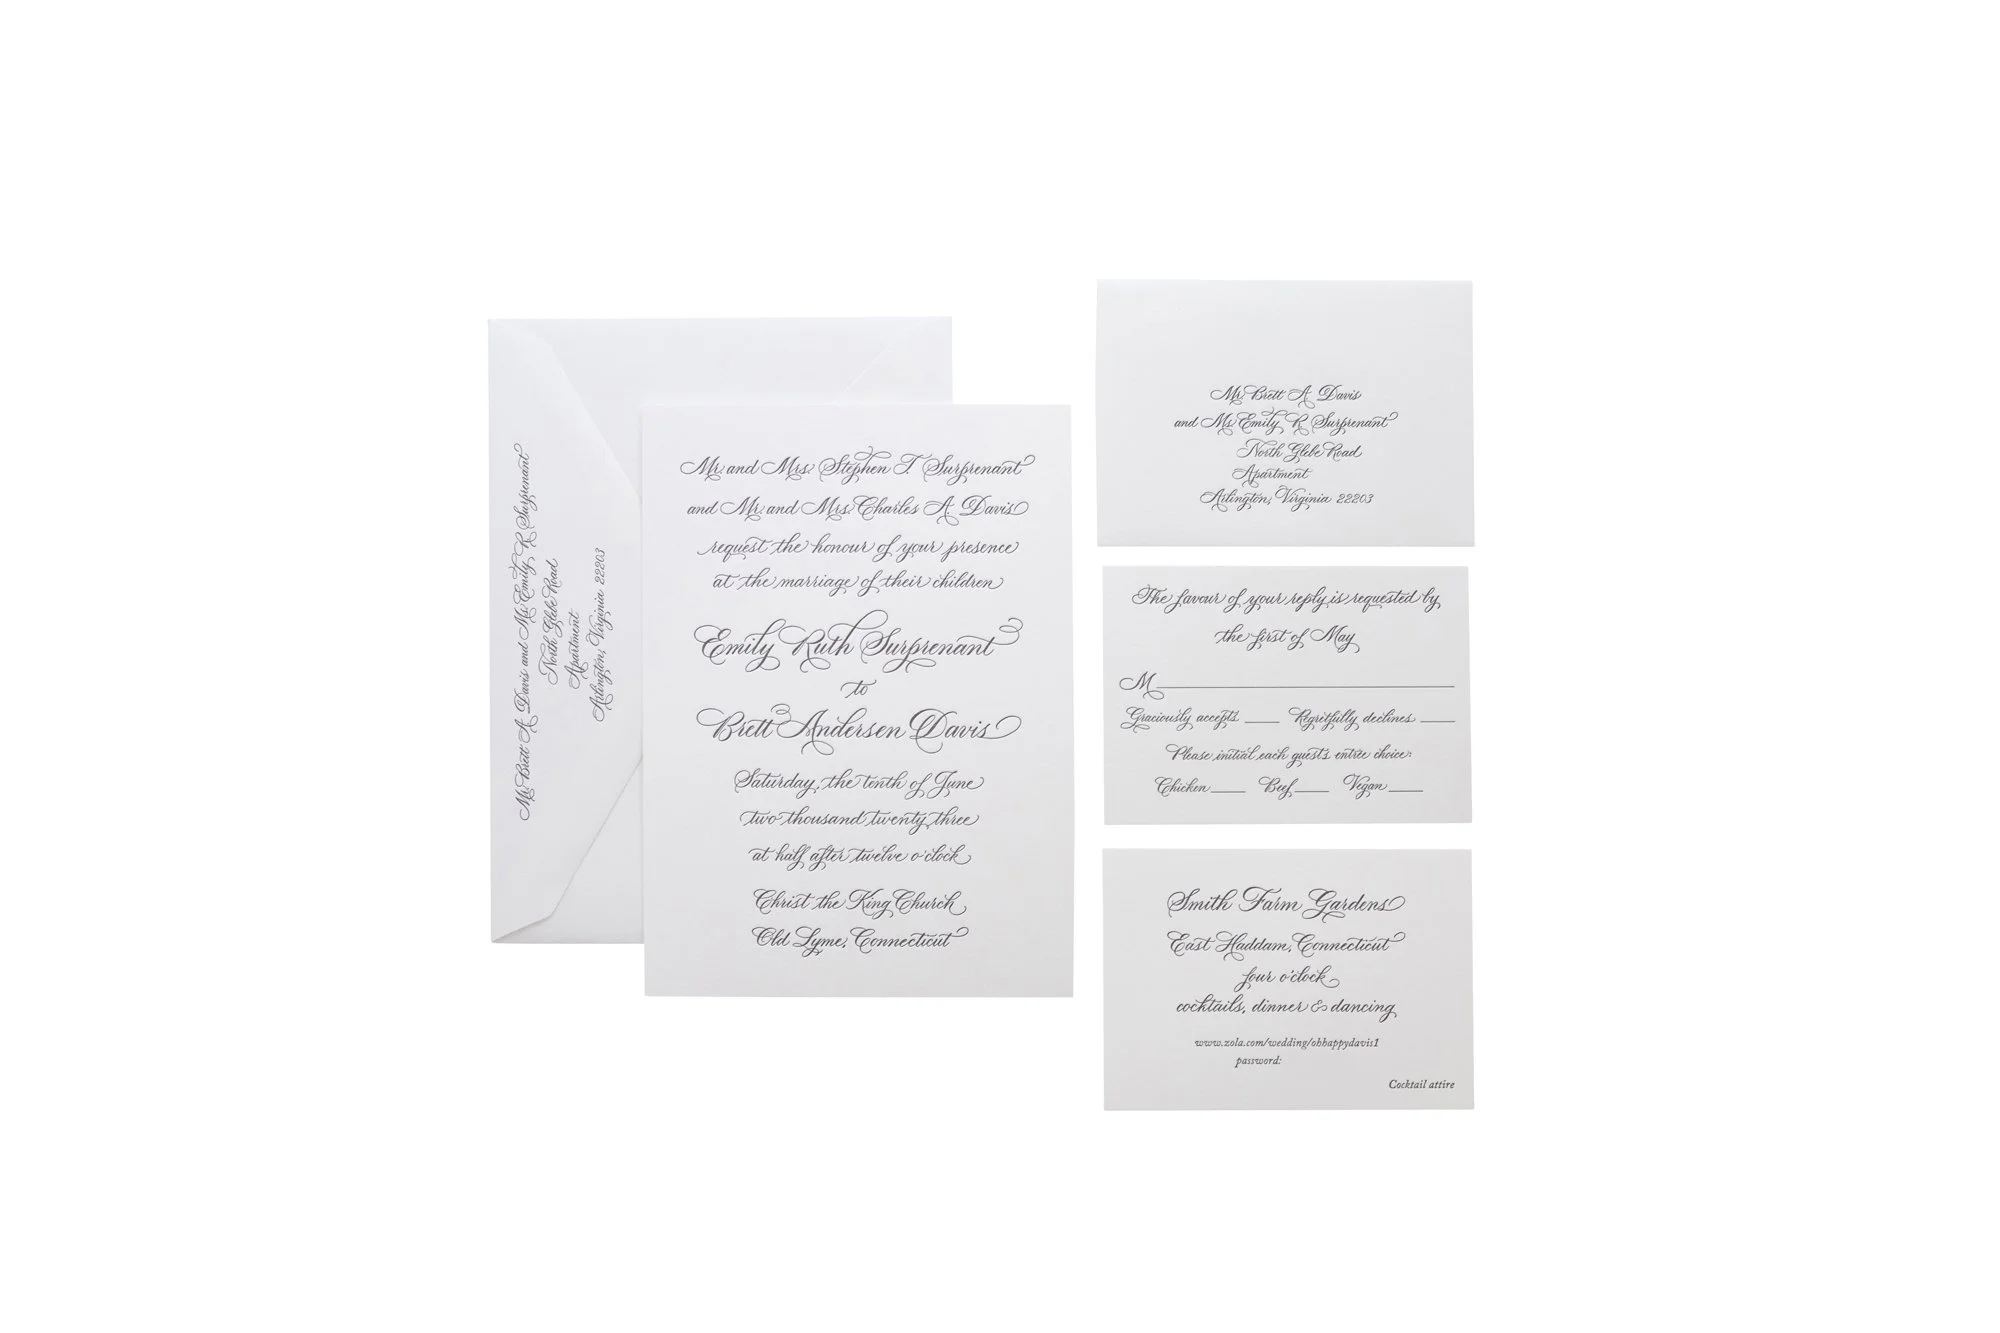 Mr. Brett A. Davis and Ms. Emily R. Surprenant
North Glebe Road
Apartment
Arlington, Virginia 22203
Mr. and Mrs. Stephen T. Surprenant
and Mr. and Mrs. Charles A. Davis
request the honour of your presence
at the marriage of their children
Emily Ruth Surprenant
to
Brett Andersen Davis
Saturday, the tenth of June
two thousand twenty three
at half after twelve o'clock
Christ the King Church
Old Lyme, Connecticut
Mr. Brett A. Davis
and Ms. Emily R. Surprenant
North Glebe Road
Apartment
Arlington, Virginia 22203
The favour of your reply is requested by
the first of May
M
Graciously accepts ____ Regretfully declines ____
Please initial each guest's entrée choice:
Chicken ____ Beef ____ Vegan ____
Smith Farm Gardens
East Haddam, Connecticut
four o'clock
cocktails, dinner & dancing
www.zola.com/wedding/ohhappydavis1
password:
Cocktail attire